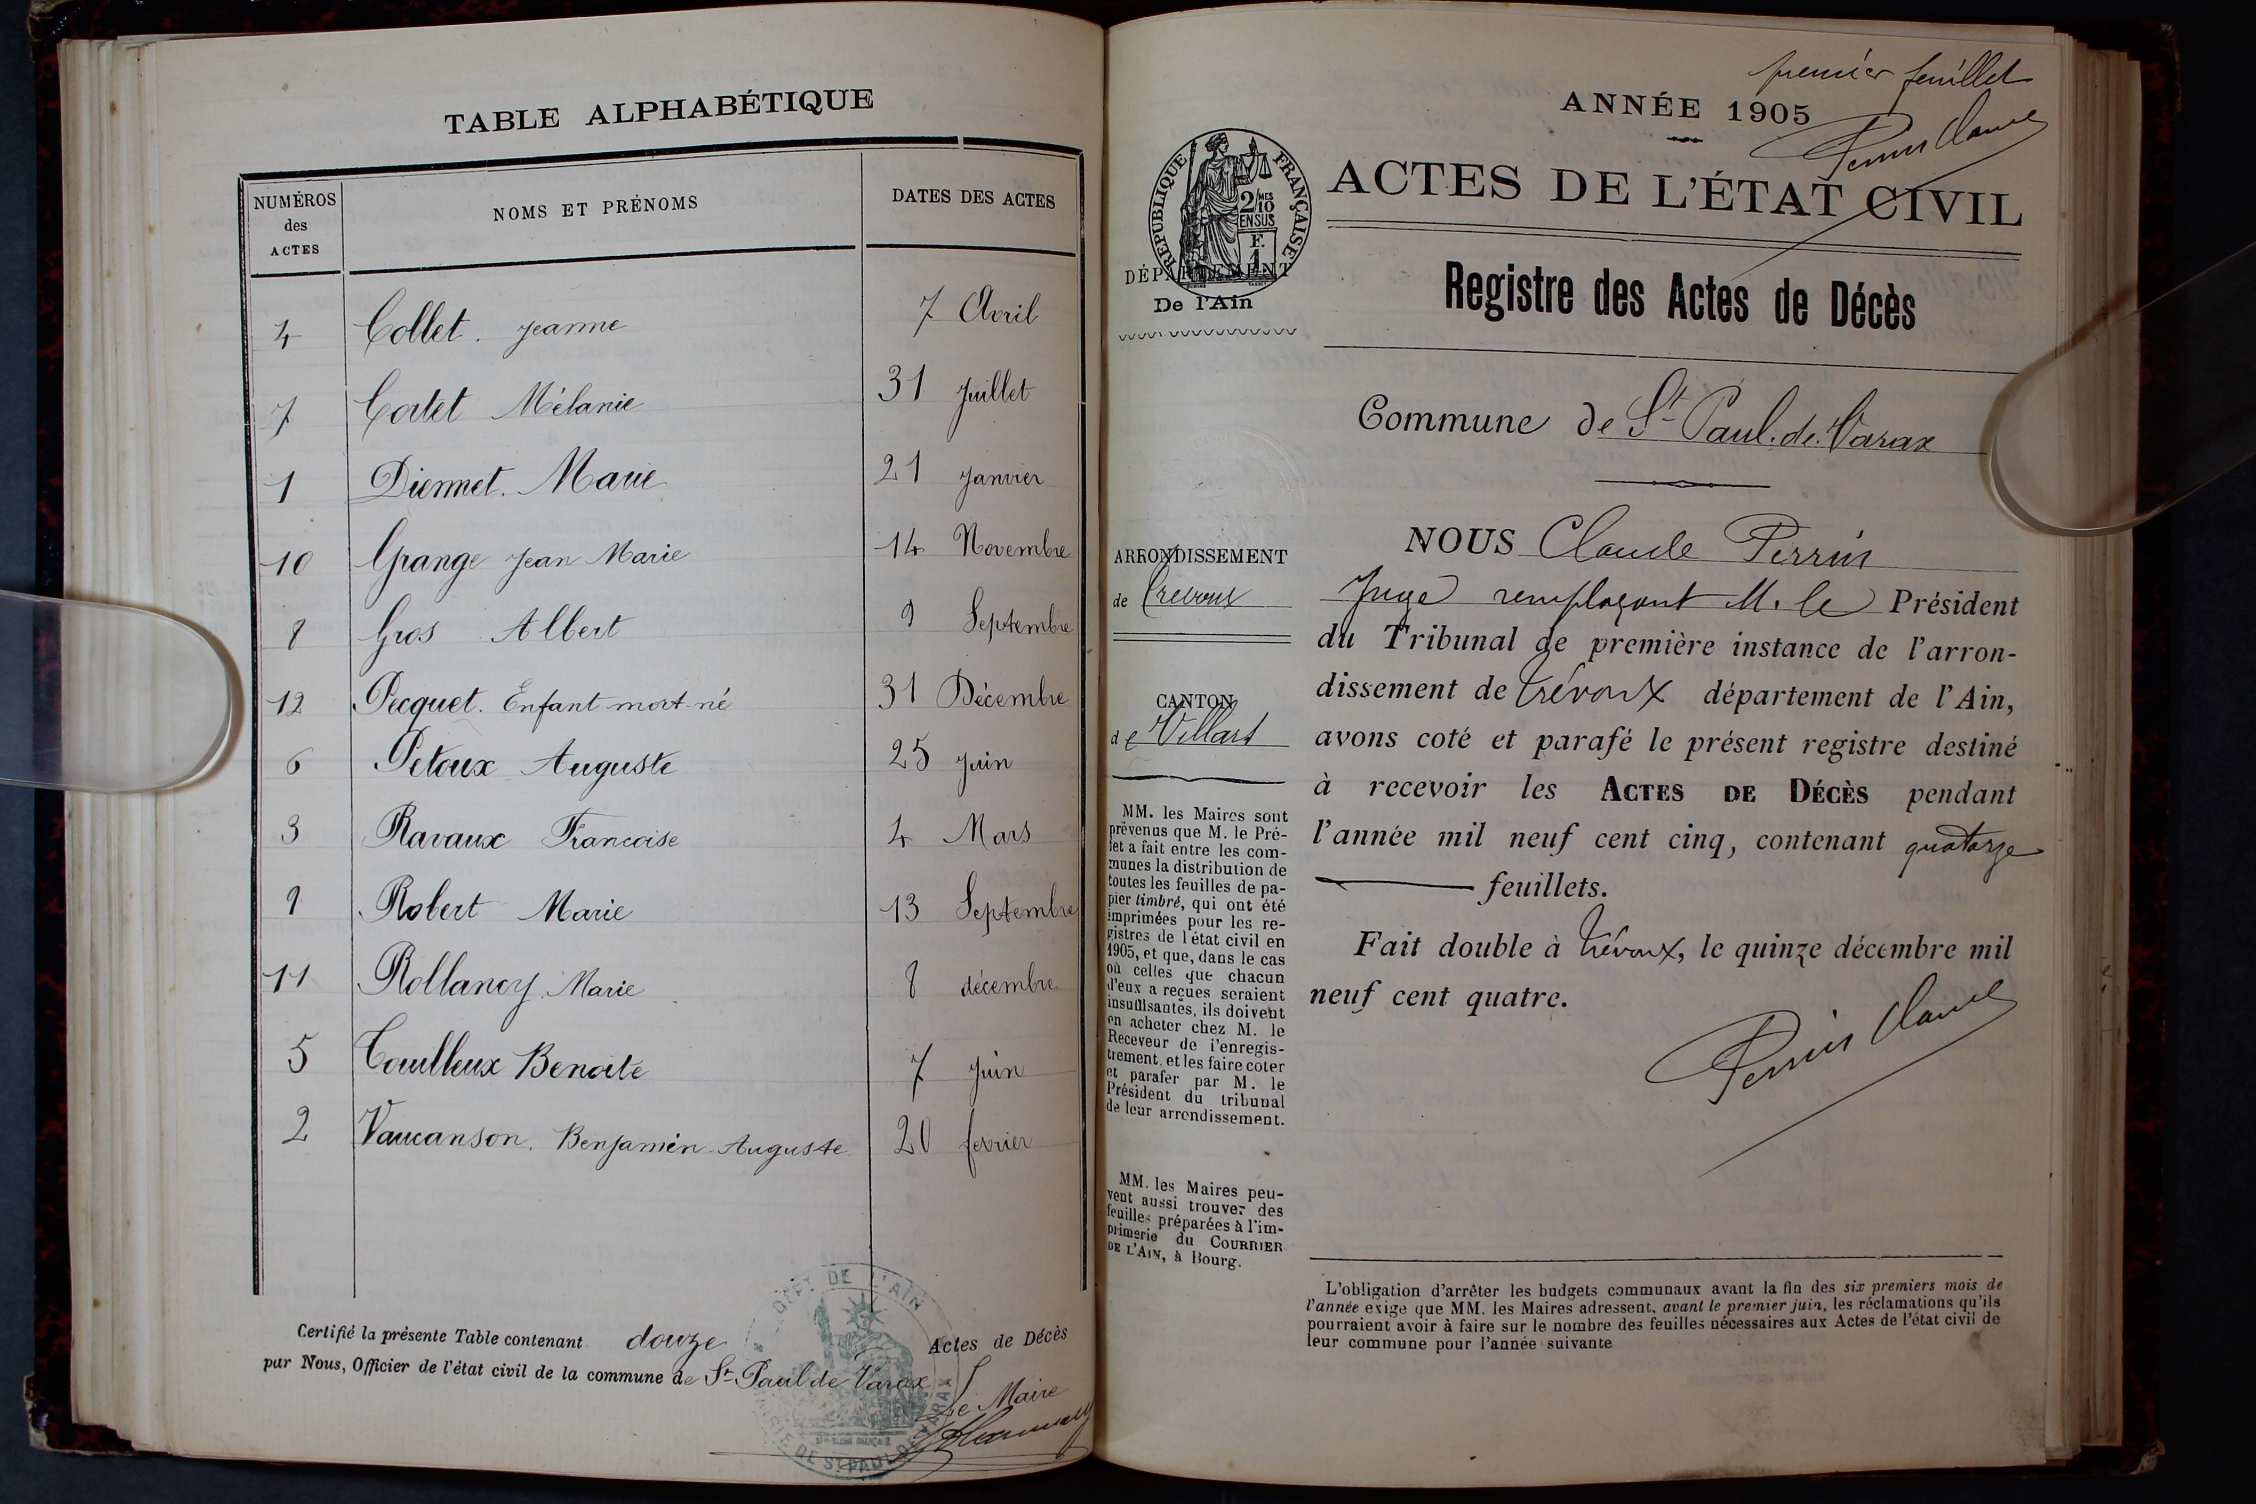 TABLE ALPHABÉTIQUE
NUMÉROS des ACTES | NOMS ET PRÉNOMS | DATES DES ACTES
4 Collet. Jeanne 7 Avril
7 Cortet Mélanie 31 Juillet
1 Diennet. Marie 21 Janvier
10 Grange Jean Marie 14 Novembre
8 Gros Albert 9 Septembre
12 Pecquet. Enfant mort-né 31 Décembre
6 Petoux Auguste 25 Juin
3 Ravaux Francoise 4 Mars
9 Robert Marie 13 Septembre
11 Rollancy Marie 8 décembre
5 Touilleux Benoite 7 Juin
2 Vaucanson. Benjamin Auguste 20 fevrier
Certifié la présente Table contenant douze Actes de Décès
par Nous, Officier de l'état civil de la commune de St Paul de Varax
Le Maire
DÉPT DE L'AIN
MAIRIE DE ST PAUL DE VARAX
premier feuillet
ANNÉE 1905
Perrin Claude
ACTES DE L'ÉTAT CIVIL
RÉPUBLIQUE FRANÇAISE
2/10 MES
EN SUS
F.
1
DÉPARTEMENT
De l'Ain
Registre des Actes de Décès
Commune de St Paul. de. Varax
ARRONDISSEMENT
de Trévoux
CANTON
de Villars
MM. les Maires sont
prévenus que M. le Pré-
fet a fait entre les com-
munes la distribution de
toutes les feuilles de pa-
pier timbré, qui ont été
imprimées pour les re-
gistres de l'état civil en
1905, et que, dans le cas
où celles que chacun
d'eux a reçues seraient
insuffisantes, ils doivent
en acheter chez M. le
Receveur de l'enregis-
trement, et les faire coter
et parafer par M. le
Président du tribunal
de leur arrondissement.
MM. les Maires peu-
vent aussi trouver des
feuilles préparées à l'im-
primerie du COURRIER
DE L'AIN, à Bourg.
NOUS Claude Perrin
Juge remplaçant M. le Président
du Tribunal de première instance de l'arron-
dissement de Trévoux département de l'Ain,
avons coté et parafé le présent registre destiné
à recevoir les ACTES DE DÉCÈS pendant
l'année mil neuf cent cinq, contenant quatorze
feuillets.
Fait double à Trévoux, le quinze décembre mil
neuf cent quatre.
Perrin Claude
L'obligation d'arrêter les budgets communaux avant la fin des six premiers mois de
l'année exige que MM. les Maires adressent, avant le premier juin, les réclamations qu'ils
pourraient avoir à faire sur le nombre des feuilles nécessaires aux Actes de l'état civil de
leur commune pour l'année suivante